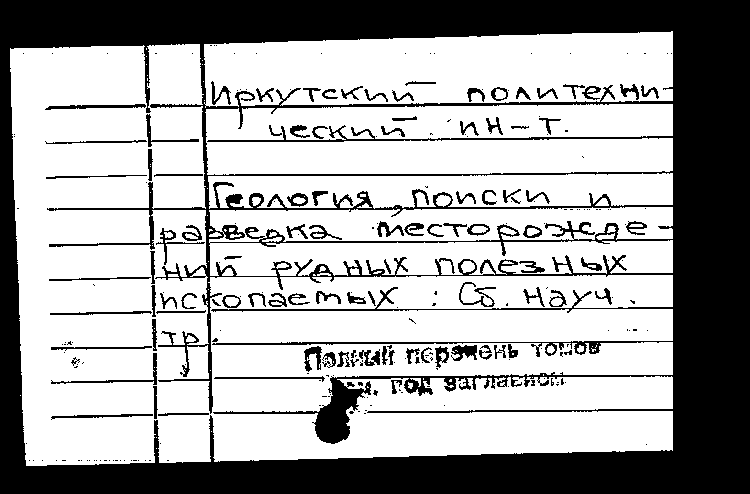 Иркутский политехни-
ческий ин-т.
Геология, поиски и
разведка месторожде-
ний рудных полезных
ископаемых : Сб. науч.
тр.
Полный перечень томов
под заглавием